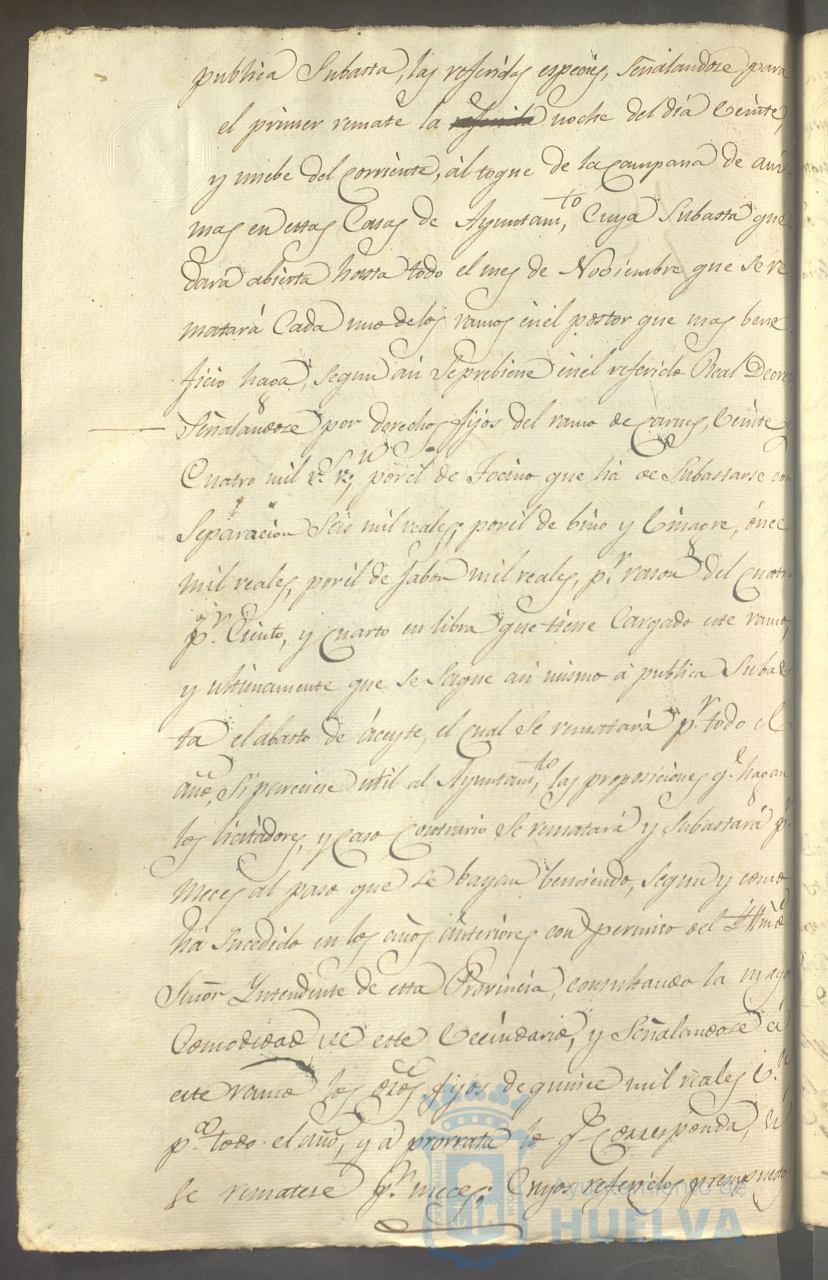 publica Subasta, las referidas especies, Señalandose para
el primer remate la noche del dia Veinte,
y nuebe del Corriente, al toque de la Campana de Ani-
mas en estas Casas de Ayuntam.to, Cuya Subasta que-
dará abierta hasta todo el mes de Noviembre que se re-
matará Cada uno de los ramos en el postor que mas bene-
ficio haga, segun asi Se prebiene en el referido Real Decre
Señalandose por derechos fijos del ramo de Carnes, Veinte y
Cuatro mil r.s por el de Tocino que há de Subastarse con
Separacion Seis mil reales; por el de bino y Vinagre, ónce
mil reales, por el de Jabon mil reales, p.r rason del Cuatro
p.r Ciento, y Cuarto en libra que tiene Cargado este ramo,
y ultimamente que se Saque asi mismo á publica Subas-
ta el abasto de Aceyte, el cual Se rematará p.r todo el
año, Si pareciese util al Ayuntam.to, las proposiciones q.e hagan
los licitadores, y Caso Contrario Se rematará y Subastará p.r
meces al paso que se bayan benciendo, segun y como
ha Sucedido en los años anteriores con permiso del
Señor Yntendente de esta Provincia, consultando la mayor
Comodidad de este Vecindario, y Señalandose á
este ramo los dros fijos de quince mil reales V.n
p.a todo el año, y á prorrata lo q.e Corresponda, si
se rematase p.r meces; Cuyos referidos presupuestos
Ayuntamiento de
HUELVA